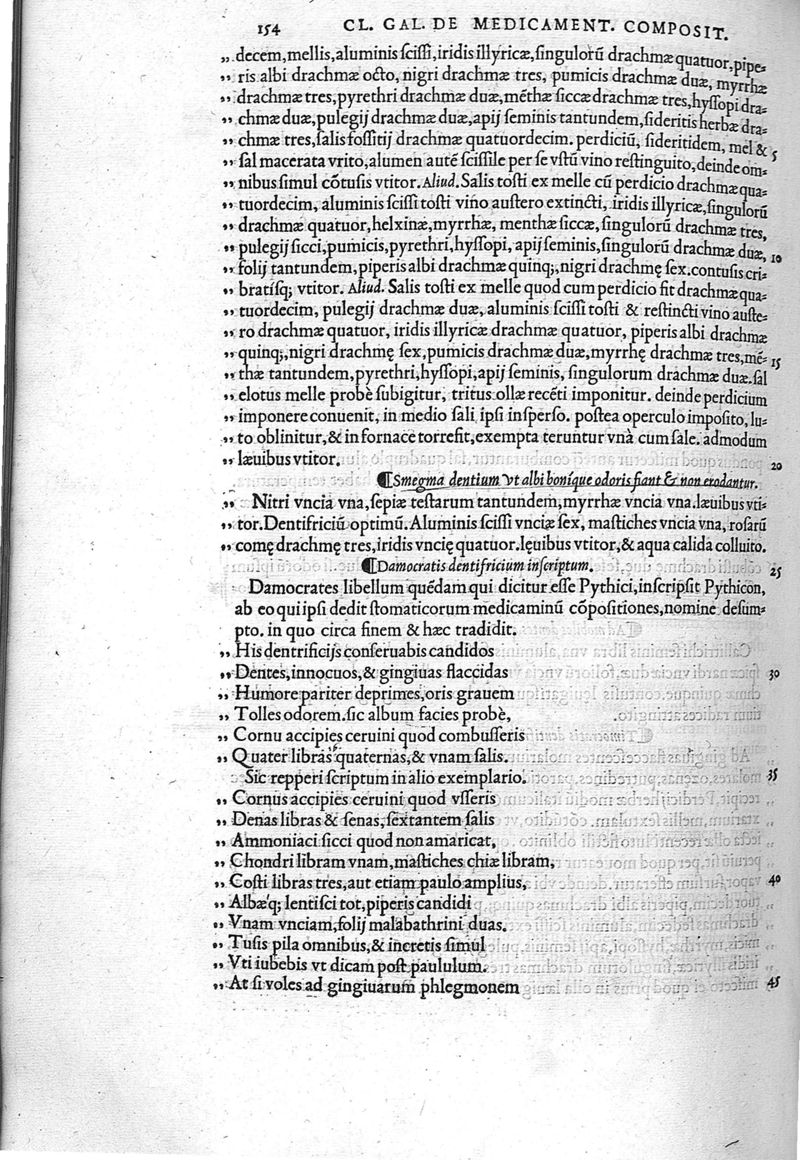 154 CL. GAL. DE MEDICAMENT. COMPOSIT.
„ decem, mellis, aluminis ſciſſi, iridis illyricæ, ſingulorũ drachmæ quatuor, pipe⸗
„ ris albi drachmæ octo, nigri drachmæ tres, pumicis drachmæ duæ, myrrhæ
„ drachmæ tres, pyrethri drachmæ duæ, mẽthæ ſiccæ drachmæ tres, hyſſopi dra⸗
„ chmæ duæ, pulegij drachmæ duæ, apij ſeminis tantundem, ſideritis herbæ dra⸗
„ chmæ tres, ſalis foſſitij drachmæ quatuordecim. perdiciũ, ſideritidem, mel & 5
„ ſal macerata vrito, alumen autẽ ſciſſile per ſe vſtũ vino reſtinguito, deinde om⸗
„ nibus ſimul cõtuſis vtitor. Aliud. Salis toſti ex melle cũ perdicio drachmæ qua⸗
„ tuordecim, aluminis ſciſſi toſti vino auſtero extincti, iridis illyricæ, ſingulorũ
„ drachmæ quatuor, helxinæ, myrrhæ, menthæ ſiccæ, ſingulorũ drachmæ tres,
„ pulegij ſicci, pumicis, pyrethri, hyſſopi, apij ſeminis, ſingulorũ drachmæ duæ, 10
„ folij tantundem, piperis albi drachmæ quinq;, nigri drachmę ſex. contuſis cri⸗
„ bratiſq; vtitor. Aliud. Salis toſti ex melle quod cum perdicio fit drachmæ qua⸗
„ tuordecim, pulegij drachmæ duæ, aluminis ſciſſi toſti & reſtincti vino auſte⸗
„ ro drachmæ quatuor, iridis illyricæ drachmæ quatuor, piperis albi drachmæ
„ quinq;, nigri drachmę ſex, pumicis drachmæ duæ, myrrhę drachmæ tres, mẽ⸗ 15
„ thæ tantundem, pyrethri, hyſſopi, apij ſeminis, ſingulorum drachmæ duæ. ſal
„ elotus melle probè ſubigitur, tritus ollæ recẽti imponitur. deinde perdicium
„ imponere conuenit, in medio ſali ipſi inſperſo. poſtea operculo impoſito, lu⸗
„ to oblinitur, & in fornace torrefit, exempta teruntur vnà cum ſale. admodum
„ læuibus vtitor. 20
¶Smegma dentium vt albi boníque odoris fiant & non erodantur.
„ Nitri vncia vna, ſepiæ teſtarum tantundem, myrrhæ vncia vna. læuibus vti⸗
„ tor. Dentifriciũ optimũ. Aluminis ſciſſi vnciæ ſex, maſtiches vncia vna, roſarũ
„ comę drachmę tres, iridis vncię quatuor. lęuibus vtitor, & aqua calida colluito.
¶Damocratis dentifricium inſcriptum. 25
Damocrates libellum quẽdam qui dicitur eſſe Pythici, inſcripſit Pythicon,
ab eo qui ipſi dedit ſtomaticorum medicaminũ cõpoſitiones, nomine deſum⸗
pto. in quo circa finem & hæc tradidit.
„ His dentrificijs conſeruabis candidos
„ Dentes, innocuos, & gingiuas flaccidas 30
„ Humore pariter deprimes, oris grauem
„ Tolles odorem. ſic album facies probè,
„ Cornu accipies ceruini quod combuſſeris
„ Quater libras quaternas, & vnam ſalis.
Sic repperi ſcriptum in alio exemplario. 35
„ Cornus accipies ceruini quod vſſeris
„ Denas libras & ſenas, ſextantem ſalis
„ Ammoniaci ſicci quod non amaricat,
„ Chondri libram vnam, maſtiches chiæ libram,
„ Coſti libras tres, aut etiam paulo amplius, 40
„ Albæq́; lentiſci tot, piperis candidi
„ Vnam vnciam, folij malabathrini duas.
„ Tuſis pila omnibus, & incretis ſimul
„ Vti iubebis vt dicam poſt paululum.
„ At ſi voles ad gingiuarum phlegmonem 45